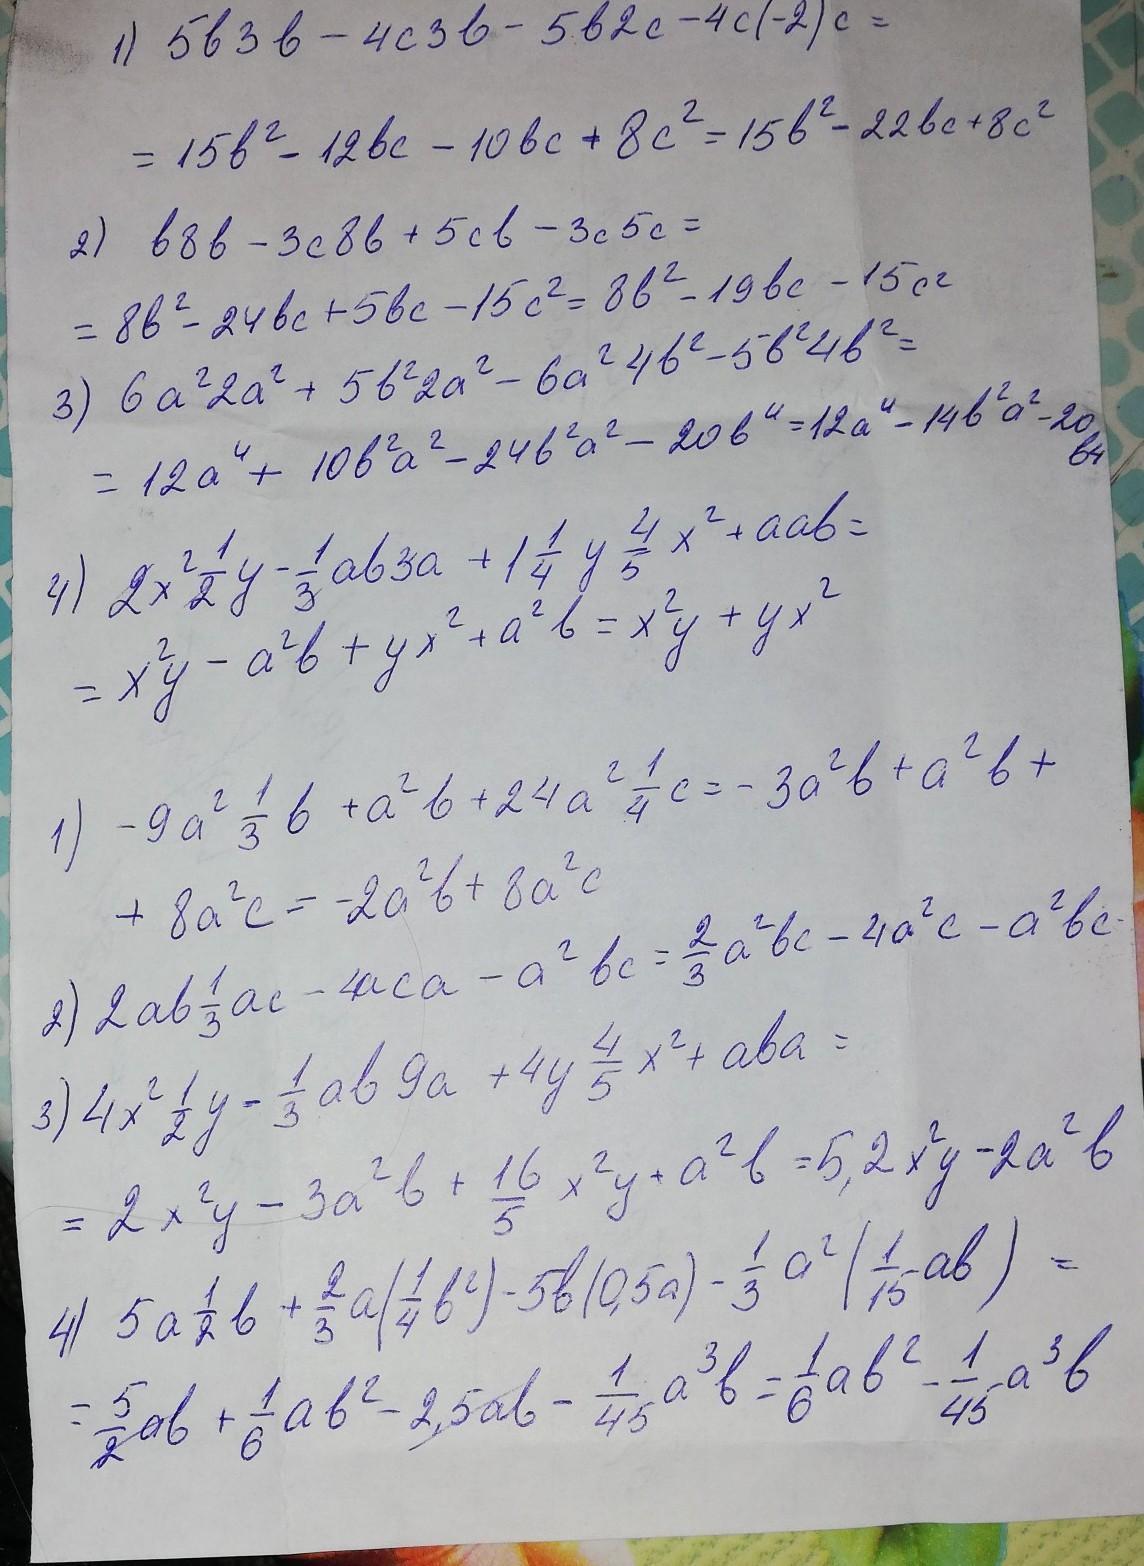 1) 5b3b - 4c3b - 5b2c - 4c(-2)c =
= 15b² - 12bc - 10bc + 8c² = 15b² - 22bc + 8c²
2) b8b - 3c8b + 5cb - 3c5c =
= 8b² - 24bc + 5bc - 15c² = 8b² - 19bc - 15c²
3) 6a²2a² + 5b²2a² - 6a²4b² - 5b²4b² =
= 12a⁴ + 10b²a² - 24b²a² - 20b⁴ = 12a⁴ - 14b²a² - 20
b4
4) 2x² 1/2 y - 1/3 ab3a + 1 1/4 y 4/5 x² + aab =
= x²y - a²b + yx² + a²b = x²y + yx²
1) -9a² 1/3 b + a²b + 24a² 1/4 c = -3a²b + a²b +
+ 8a²c = -2a²b + 8a²c
2) 2ab 1/3 ac - 4aca - a²bc = 2/3 a²bc - 4a²c - a²bc
3) 4x² 1/2 y - 1/3 ab 9a + 4y 4/5 x² + aba =
= 2x²y - 3a²b + 16/5 x²y + a²b = 5,2x²y - 2a²b
4) 5a 1/2 b + 2/3 a(1/4 b²) - 5b(0,5a) - 1/3 a² (1/15 ab) =
= 5/2 ab + 1/6 ab² - 2,5ab - 1/45 a³b = 1/6 ab² - 1/45 a³b